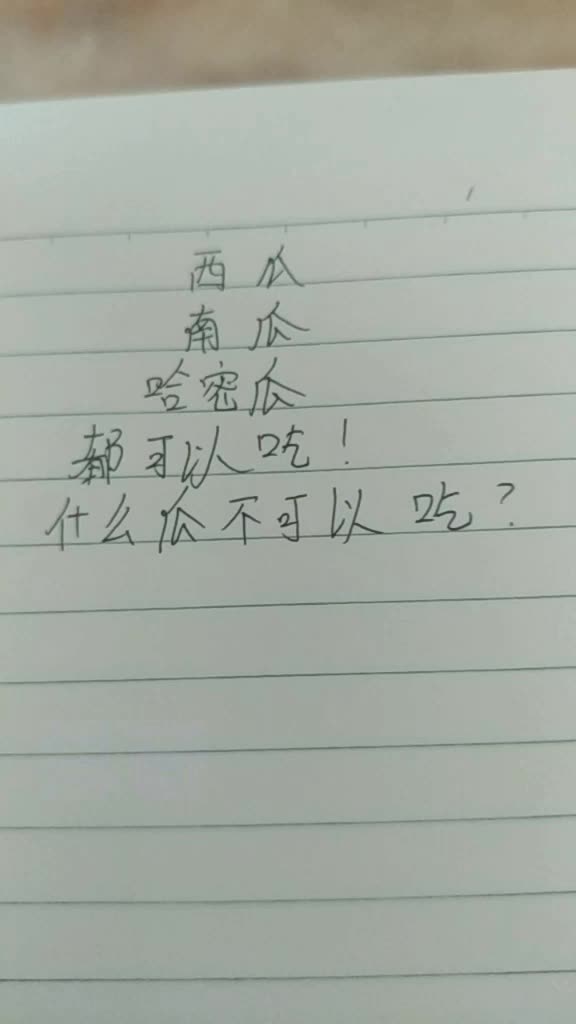 西瓜
南瓜
哈密瓜
都可以吃！
什么瓜不可以吃？